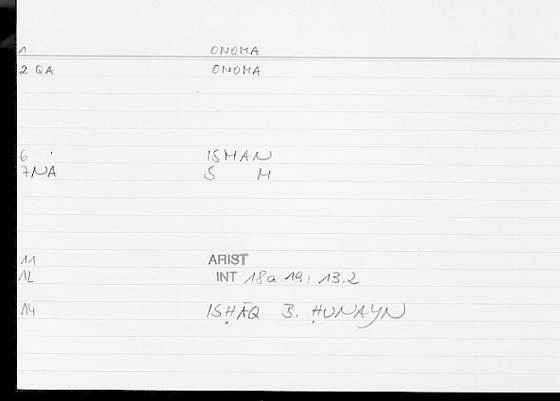 1 ONOMA
2 QA ONOMA
6 ISMAN
7NA S M
11 ARIST
12 INT 18a 19; 13.2
14 ISḤĀQ B. ḤUNAYN